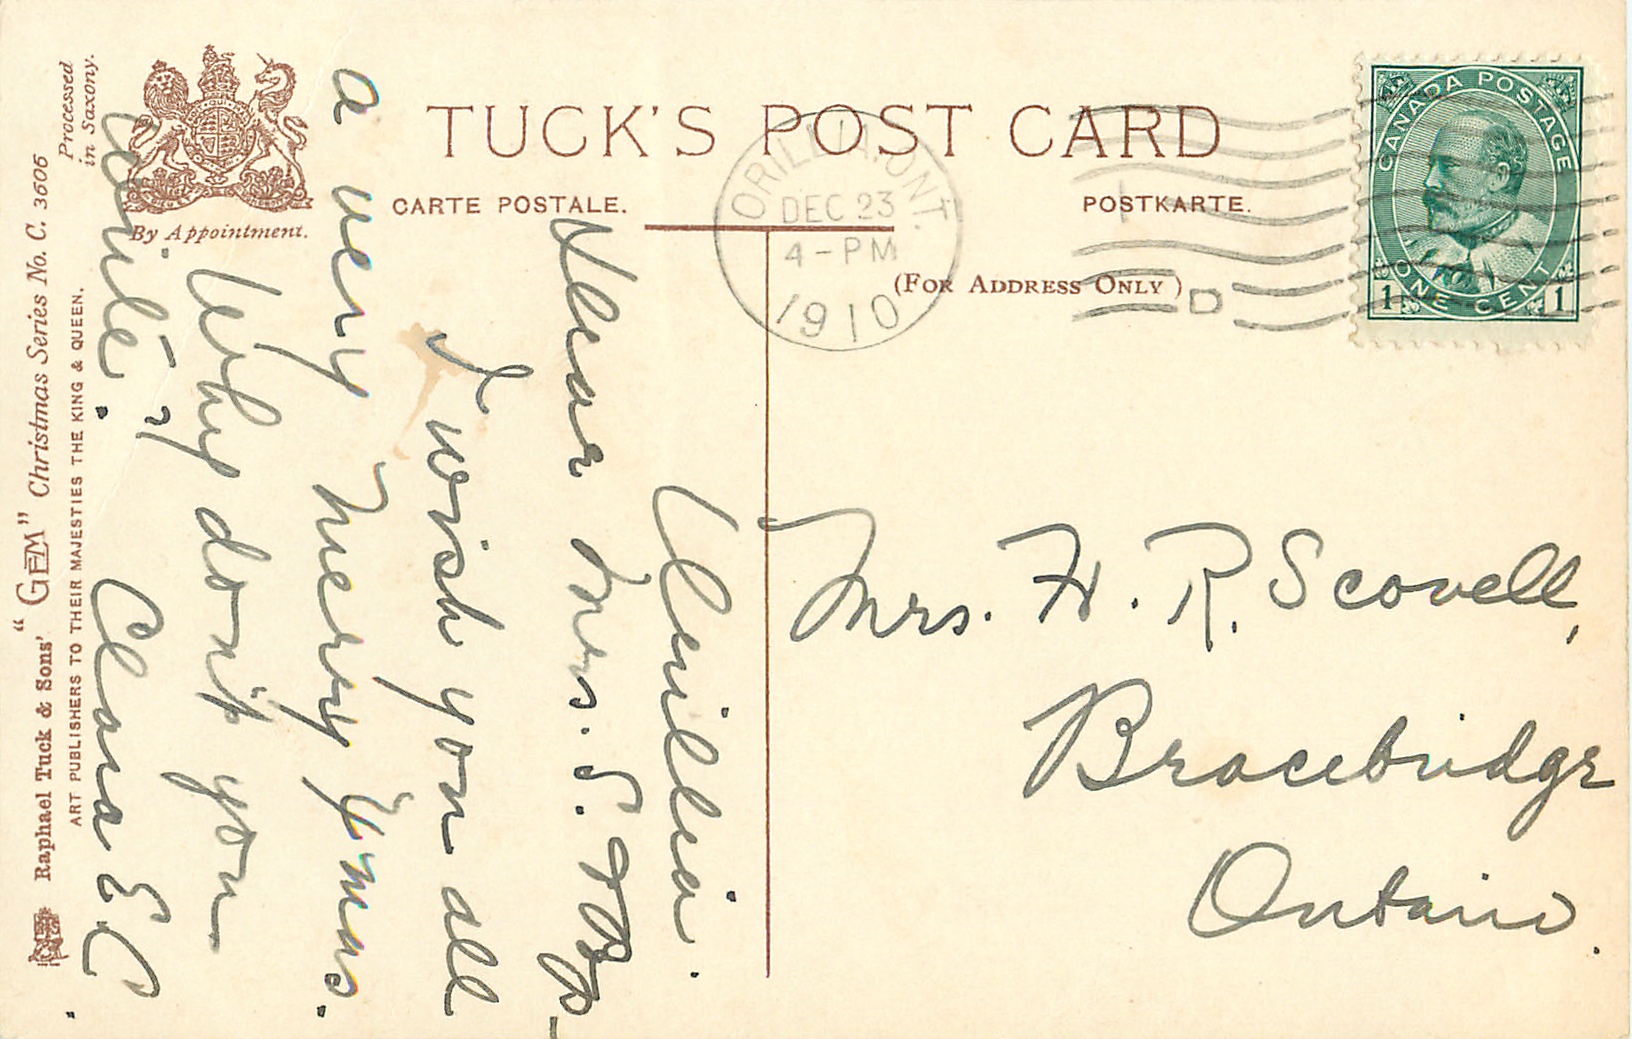 Processed
in Saxony.
By Appointment.
Raphael Tuck & Sons' "GEM" Christmas Series No. C. 3606
ART PUBLISHERS TO THEIR MAJESTIES THE KING & QUEEN.
TUCK'S POST CARD
CARTE POSTALE.
POSTKARTE.
(FOR ADDRESS ONLY)
ORILLIA, ONT.
DEC 23
4-PM
1910
CANADA POSTAGE
1 ONE CENT 1
Orillia.
Dear Mrs. S.
I wish you all
a very Merry Xmas.
Why don't you
write?
Clara E C
Mrs. H. R. Scovell,
Bracebridge
Ontario.